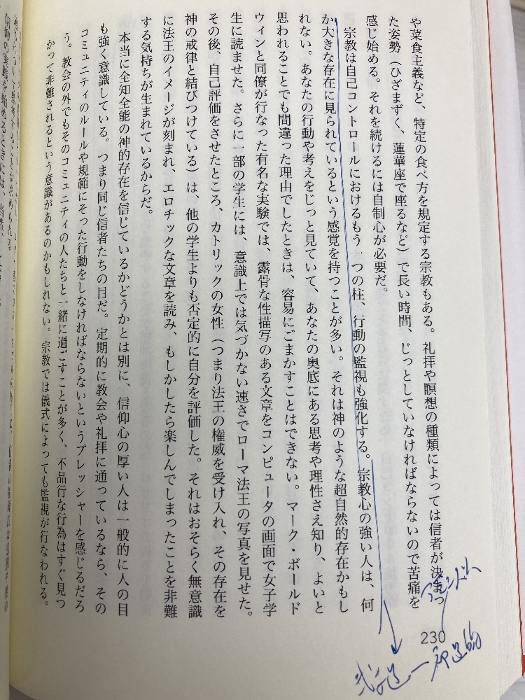 や菜食主義など、特定の食べ方を規定する宗教もある。礼拝や瞑想の種類によっては信者が決まっ
た姿勢（ひざまずく、蓮華座で座るなど）で長い時間、じっとしていなければならないので苦痛を
感じ始める。それを続けるには自制心が必要だ。
宗教は自己コントロールにおけるもう一つの柱、行動の監視も強化する。宗教心の強い人は、何
か大きな存在に見られているという感覚を持つことが多い。それは神のような超自然的存在かもし
れない。あなたの行動や考えをじっと見ていて、あなたの奥底にある思考や理性さえ知り、よいと
思われることでも間違った理由でしたときは、容易にごまかすことはできない。マーク・ボールド
ウィンと同僚が行なった有名な実験では、露骨な性描写のある文章をコンピュータの画面で女子学
生に読ませた。さらに一部の学生には、意識上では気づかない速さでローマ法王の写真を見せた。
その後、自己評価をさせたところ、カトリックの女性（つまり法王の権威を受け入れ、その存在を
神の戒律と結びつけている）は、他の学生よりも否定的に自分を評価した。それはおそらく無意識
に法王のイメージが刻まれ、エロチックな文章を読み、もしかしたら楽しんでしまったことを非難
する気持ちが生まれているからだ。
本当に全知全能の神的存在を信じているかどうかとは別に、信仰心の厚い人は一般的に人の目
も強く意識している。つまり同じ信者たちの目だ。定期的に教会や礼拝に通っているなら、その
コミュニティのルールや規範にそった行動をしなければならないというプレッシャーを感じるだろ
う。教会の外でもそのコミュニティの人たちと一緒に過ごすことが多く、不品行な行為はすぐ見つ
かって非難されるという意識があるのかもしれない。宗教では儀式によっても監視が行なわれる。
230